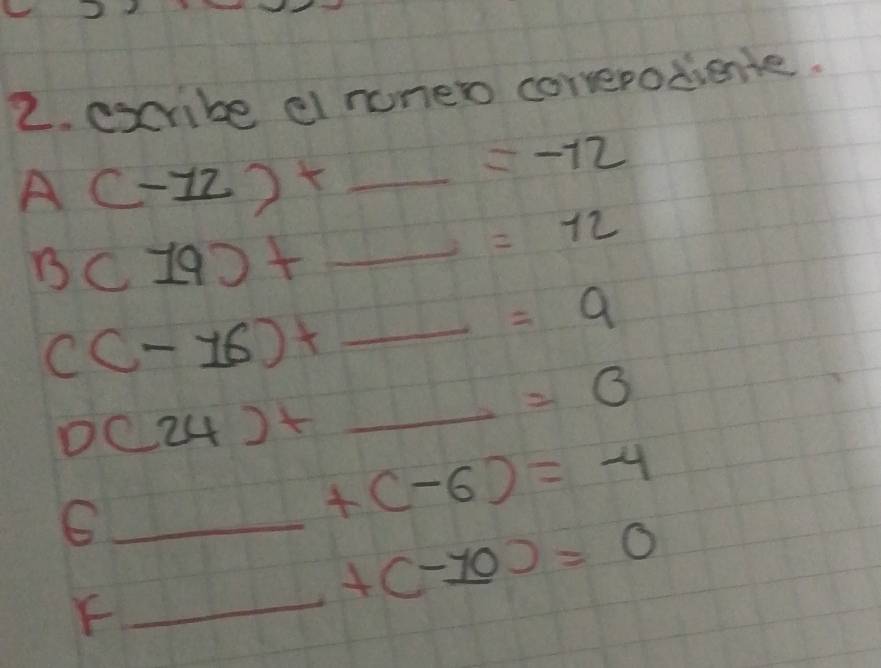 2. escribe el numero correpodiente.
A (-12) + ___ = -12
B (19) + ___ = 12
C (-16) + ___ = 9
D (24) + ___ = 0
E ___ + (-6) = -4
F ___ + (-10) = 0